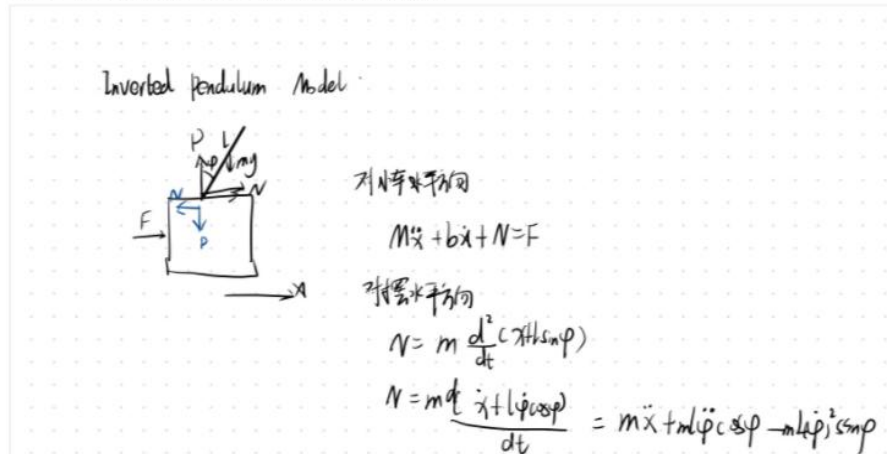 Inverted Pendulum Model
P l
φ mg
N N
F
P
x
对小车水平方向
Mẍ + bẋ + N = F
对摆水平方向
N = m d²/dt (x+lsinφ)
N = m d(ẋ + lφ̇cosφ)/dt = mẍ + mlφ̈cosφ - ml(φ̇)²sinφ